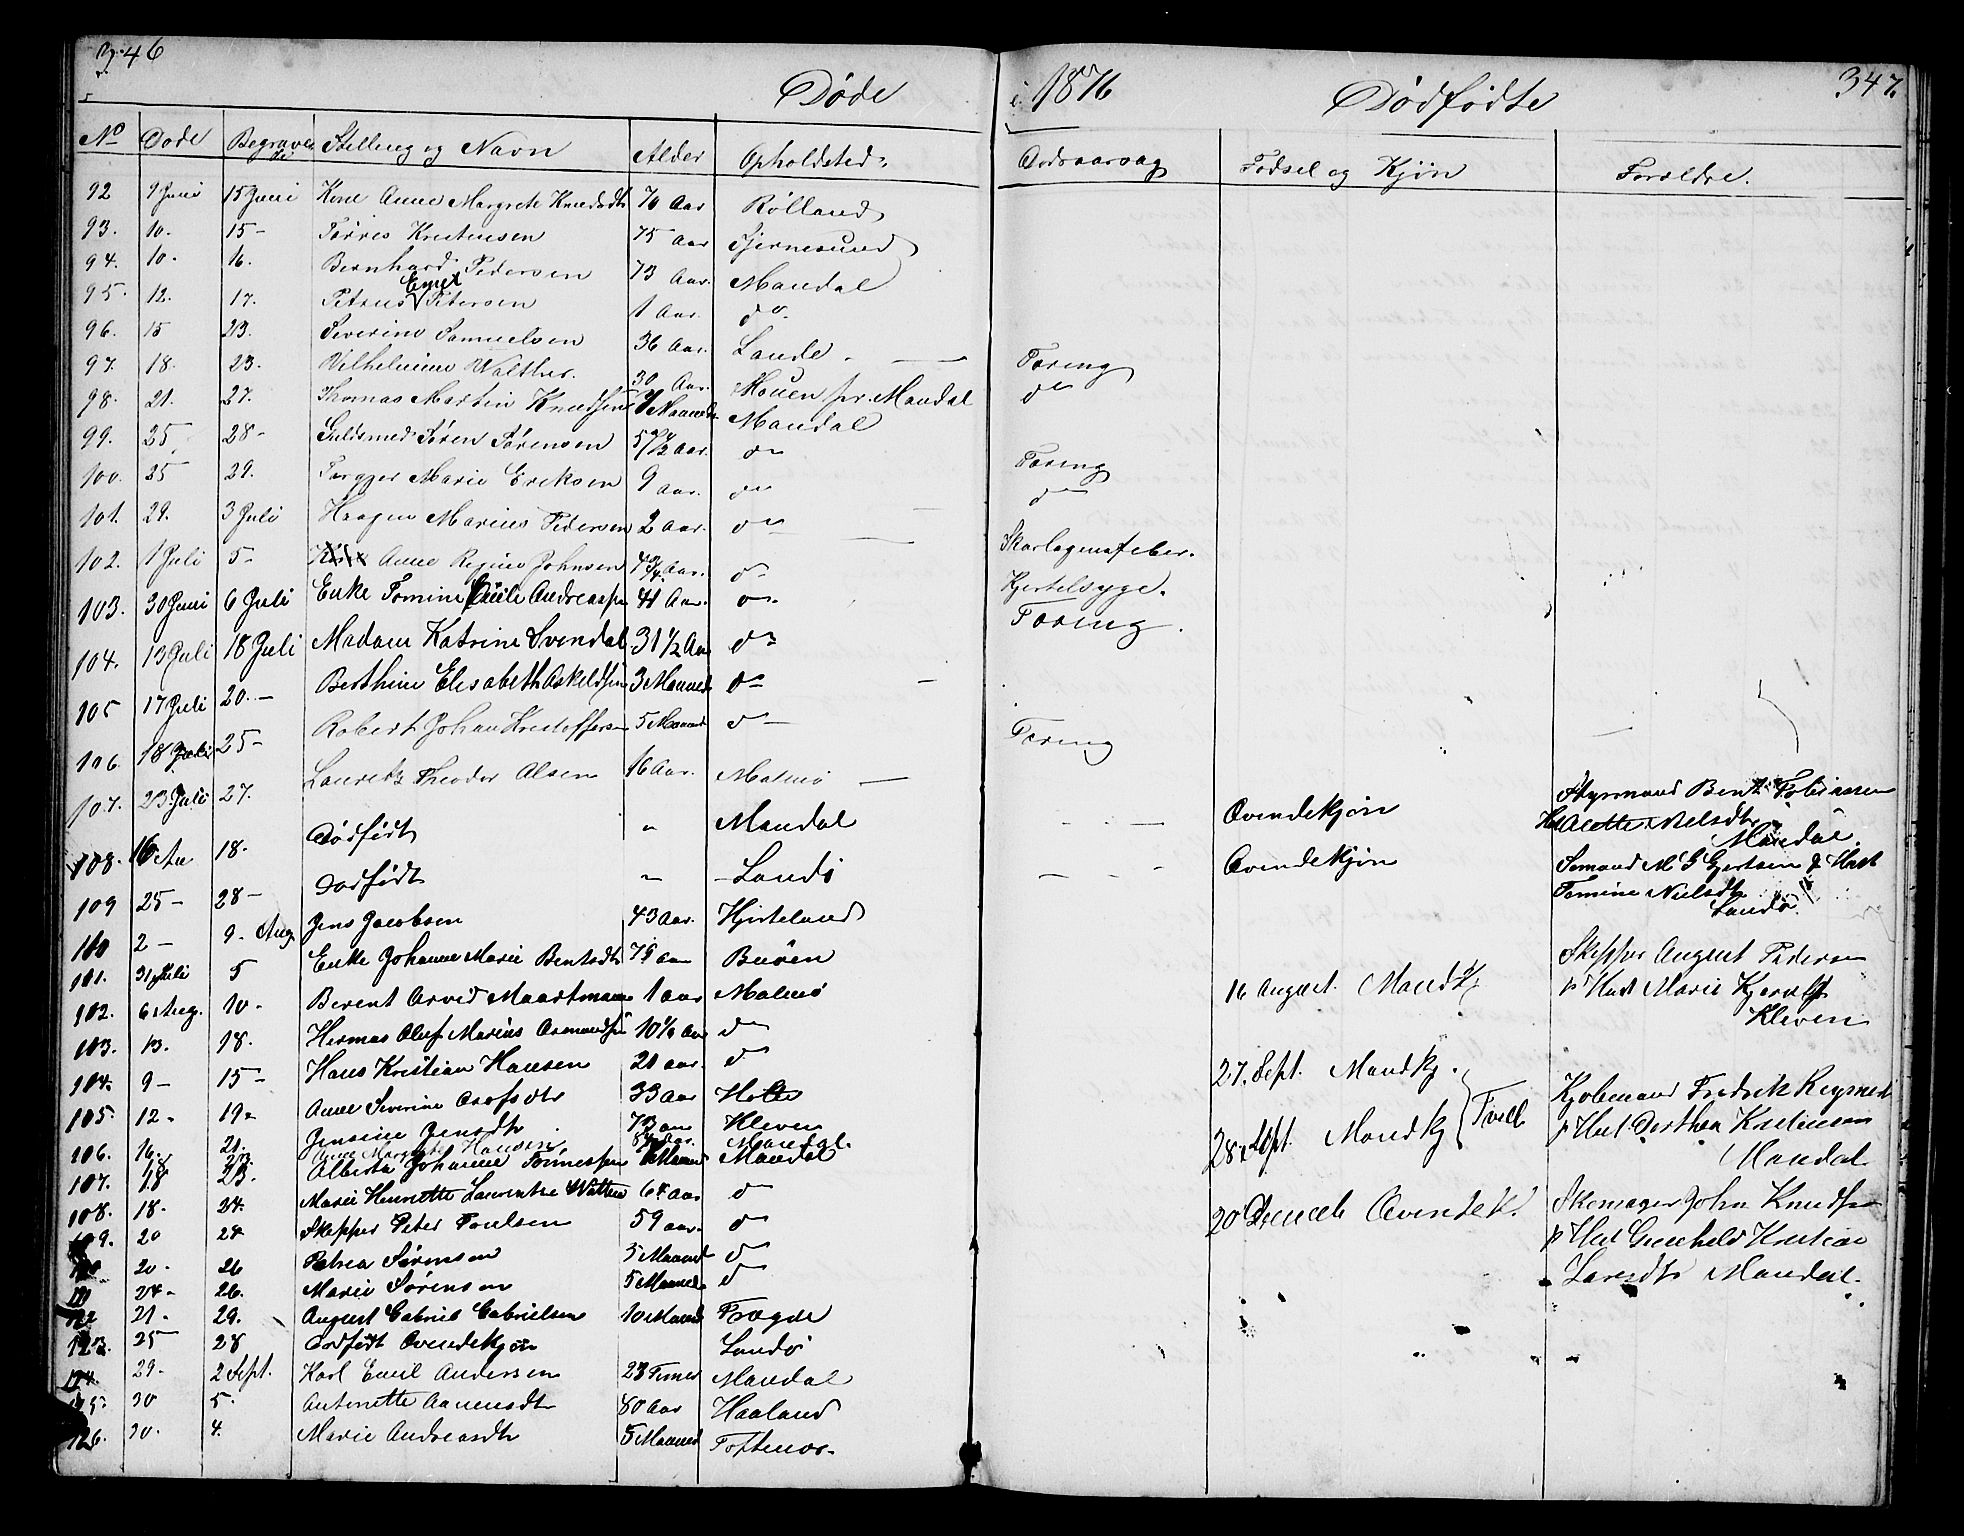 346
Døde
No Døde Begravede Stilling og Navn Alder Opholdsted
92 9 Juni 15 Juni Kone Anne Margrete Knudsdt 70 Aar Rølland
93. 10. 15- Tørres Kristensen 75 Aar Tjernesund
94. 10. 16. Bernhard Pedersen 73 Aar. Mandal
95. 12. 17. Petrus Emil Petersen 1 Aar. do
96. 15 23. Severine Samuelsen 36 Aar. Lande
97. 18. 23. Vilhelmine Walther. 30 Aar. Mouen pr. Mandal
98. 21. 27. Thomas Martin Knudsen Maaneder Mandal
99. 25 28- Guldsmed Søren Sørensen Aar. do
100. 25 29. Torgjer Marie Eriksen 9 Aar. do
101. 29. 3 Juli Haagen Marius Pedersen 2 Aar. do
102. 1 Juli 5- Anne Regine Johnsen Aar. do
103. 30 Juni 6 Juli Enke Tomine Andreassen 41 Aar. do
104. 13 Juli 18 Juli Madam Katrine Svendal 31 1/2 Aar do
105 17 Juli 20.- Berthine Elisabeth Askeldsen 3 Maaned do
106. 18 Juli 25- Robert Johan Kristoffersen 5 Maaned do
107. 23 Juli 27. Lauritz Theodor Olsen 16 Aar. Malmø
108. 16 18. Dødfødt " Mandal
109 25- 28- Dødfødt " Landø
100 2- 9. Aug Jens Jacobsen 43 Aar. Hjirteland
101. 31 Juli 5 Enke Johanne Marie Bentsdt Aar Buøen
102. 6 Aug. 10- Berent Arvid Maartmann 1 Aar Malmø
103. 13. 18. Herman Oluf Marius Osmundsen Aar do
104. 9- 15- Hans Kristian Hansen 21 Aar. do
105. 12- 19- Anne Severine Olofsdt 33 Aar Holte
106. 16. 21. Jensine Jensdt 73 Aar Kleven
Anne Margrete Hansen Aar. Mandal.
107. 18 23. Alberta Johanne Tønnessen Maaned Mandal
108. 18. 24. Marie Henriette Laurentze Aar do
109. 20 24 Skipper Peter Poulsen 59 Aar. do
20. 26 Petrea Sørensen 5 Maaned do
24- 26. Marie Sørensen 5 Maaneder do
21. 29. August Gabriel Gabrielsen 10 Maaned Tregde
25 28 Dødfødt Qvindekjøn Landø
124. 29. 2 Sept. Karl Emil Andersen 23 Timer Mandal
30 5. Antonette Aanensdt 80 Aar Haaland
126. 30. 4. Marie Andreasdt 5 Maaned Toftenes.
i 1876
Dødfødte
347.
Dødsaarsag Fødsel og Kjøn Foreldre.
Tæring
do
Tæring
do
Skarlagensfeber.
Kjertelsyge.
Tæring.
Tæring
Qvindekjøn Styrmand Bent Tobiassen
Alette Nielsdtr
Mandal
Qvindekjøn Sømand M G Gjertsen & Hust
Tomine Nielsdtr
Landø.
16 August. Mandkj Skipper August Pedersen
& Hust Marie
Kleven
27. Sept. Mandkj.
28. Sept. Mandkj Tvill Kjøbmand Fredrik
& Hust Dorthea Kristensen
Mandal
20 Decemb Qvindek. Skomager John Knudsen
& Hust Gunhild Kristine
Larsdtr Mandal.